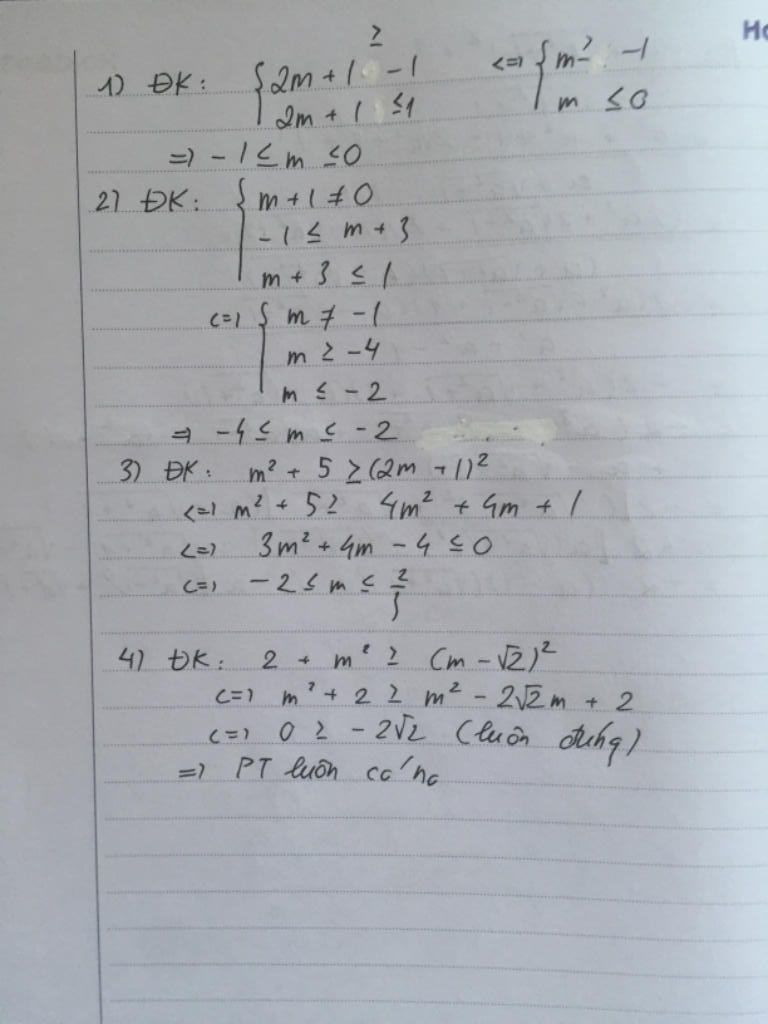 Ho
1) ĐK: { 2m + 1 ≥ -1 <=> { m ≥ -1
2m + 1 ≤ 1 m ≤ 0
=> -1 ≤ m ≤ 0
2) ĐK: { m + 1 ≠ 0
-1 ≤ m + 3
m + 3 ≤ 1
<=> { m ≠ -1
m ≥ -4
m ≤ -2
=> -4 ≤ m ≤ -2
3) ĐK: m² + 5 ≥ (2m + 1)²
<=> m² + 5 ≥ 4m² + 4m + 1
<=> 3m² + 4m - 4 ≤ 0
<=> -2 ≤ m ≤ 2/3
4) ĐK: 2 + m² ≥ (m - √2)²
<=> m² + 2 ≥ m² - 2√2m + 2
<=> 0 ≥ -2√2 (luôn đúng)
=> PT luôn có no